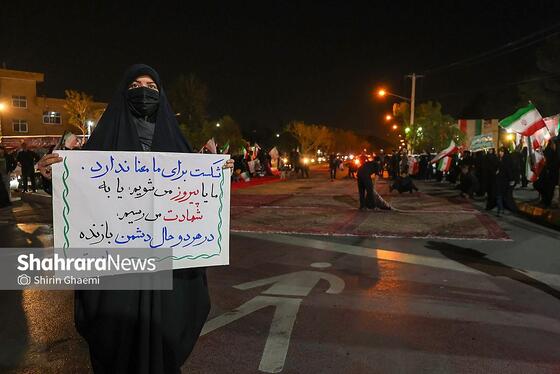 شکست برای ما معنا ندارد.
ما یا پیروز می‌شویم؛ یا به
شهادت می‌رسیم؛
در هر دو حال دشمن بازنده
ShahraraNews
Shirin Ghaemi